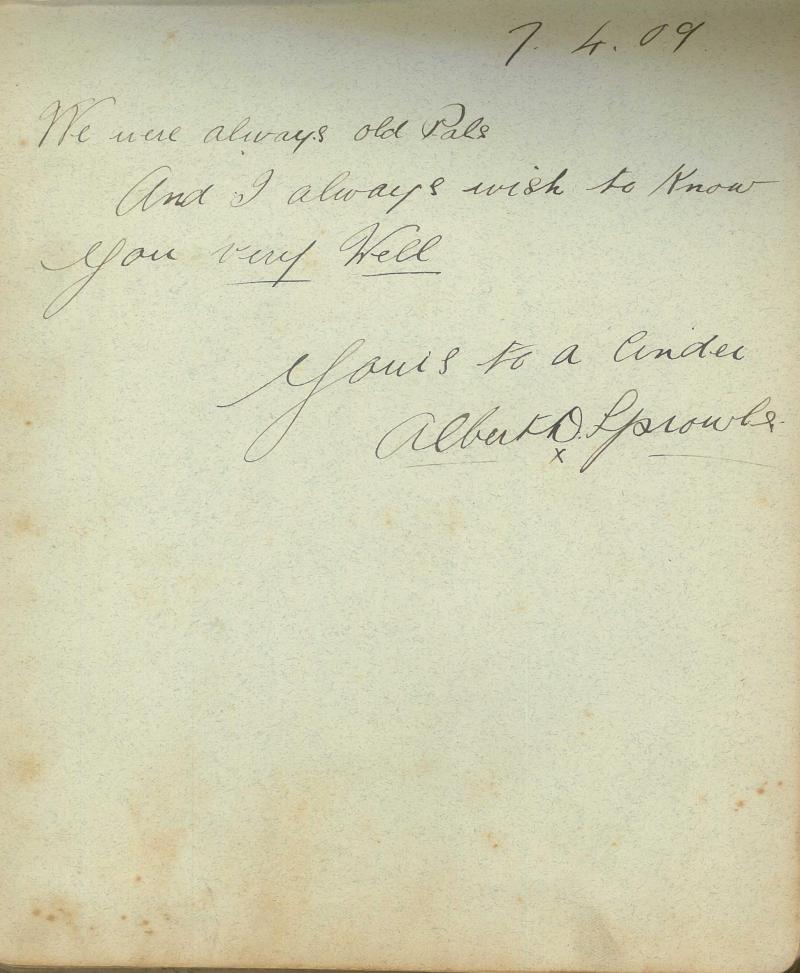 7. 4. 09
We were always old Pals
And I always wish to Know
You very Well
Yours to a Cinder
Albert D. Sprowls
x